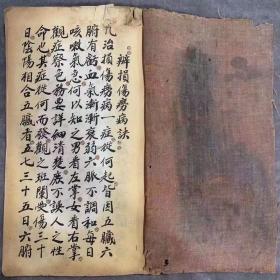 辨損傷勞病訣
凡治損傷勞病一症從何起皆因五臟六
腑有虧血氣漸漸衰弱六脉不調和每日
咳嗽氣急何以知之男看左掌女看右掌
觀症察色務要詳細清楚庶不誤人之性
命也其症從何而發觀之班闌要傷三十
日陰陽相合五臟者五七三十五日六腑